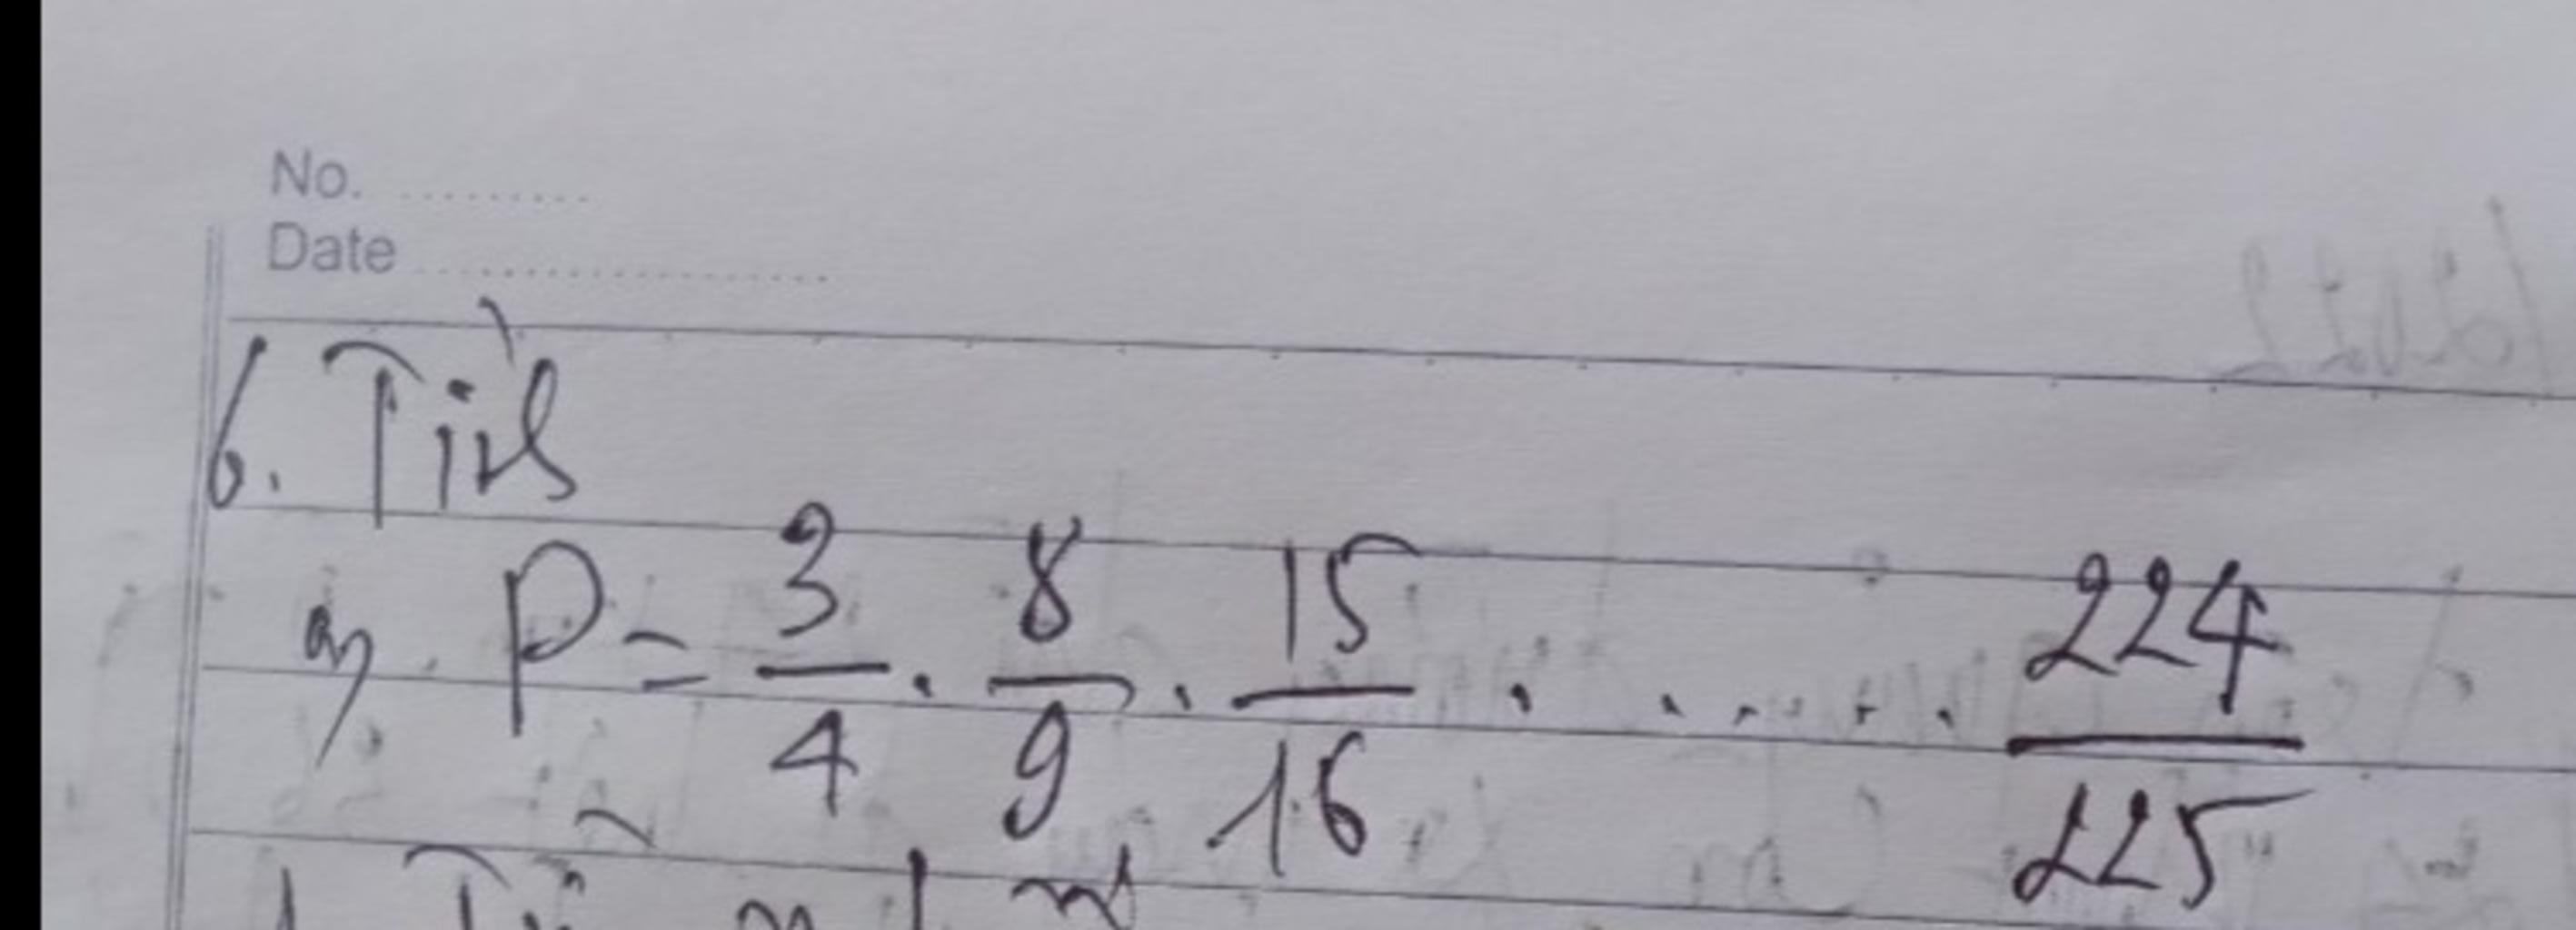 No. ..........
Date ....................
6. Tính
a, P = 3/4 . 8/9 . 15/16 . ..... . 224/225